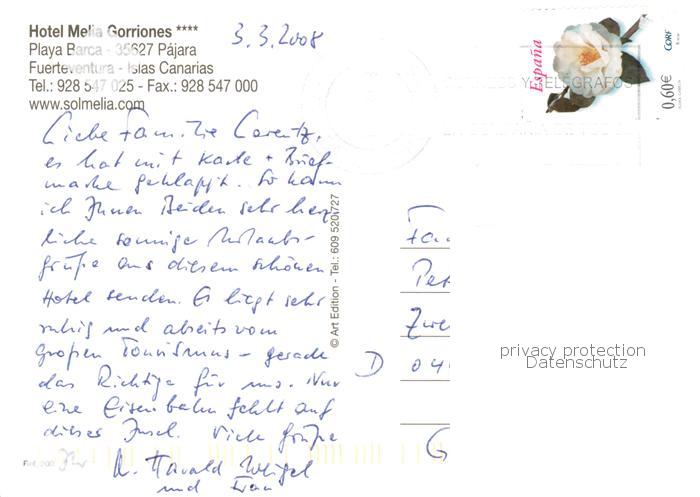 Hotel Melia Gorriones ****
Playa Barca - 35627 Pájara
Fuerteventura - Islas Canarias
Tel.: 928 547 025 - Fax.: 928 547 000
www.solmelia.com
3.3.2008
Liebe Familie
es hat mit Karte + Brief-
marke geklappt. So kann
ich Ihnen Beiden sehr herz-
liche sonnige Urlaubs-
grüße aus diesem schönen
Hotel senden. Es liegt sehr
ruhig und abseits vom
großen Tourismus - gerade
das Richtige für uns. Nur
eine Eisenbahn fehlt auf
dieser Insel. Viele Grüße
Ihr
Harald Weigel
und Frau
© Art Edition - Tel.: 609 520 727
España
CORREOS Y TELÉGRAFOS
0,60€
CORREOS
Fam
Pet
Zwe
D 04
G
privacy protection
Datenschutz